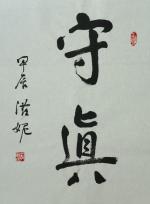 守真
甲辰 浩妮